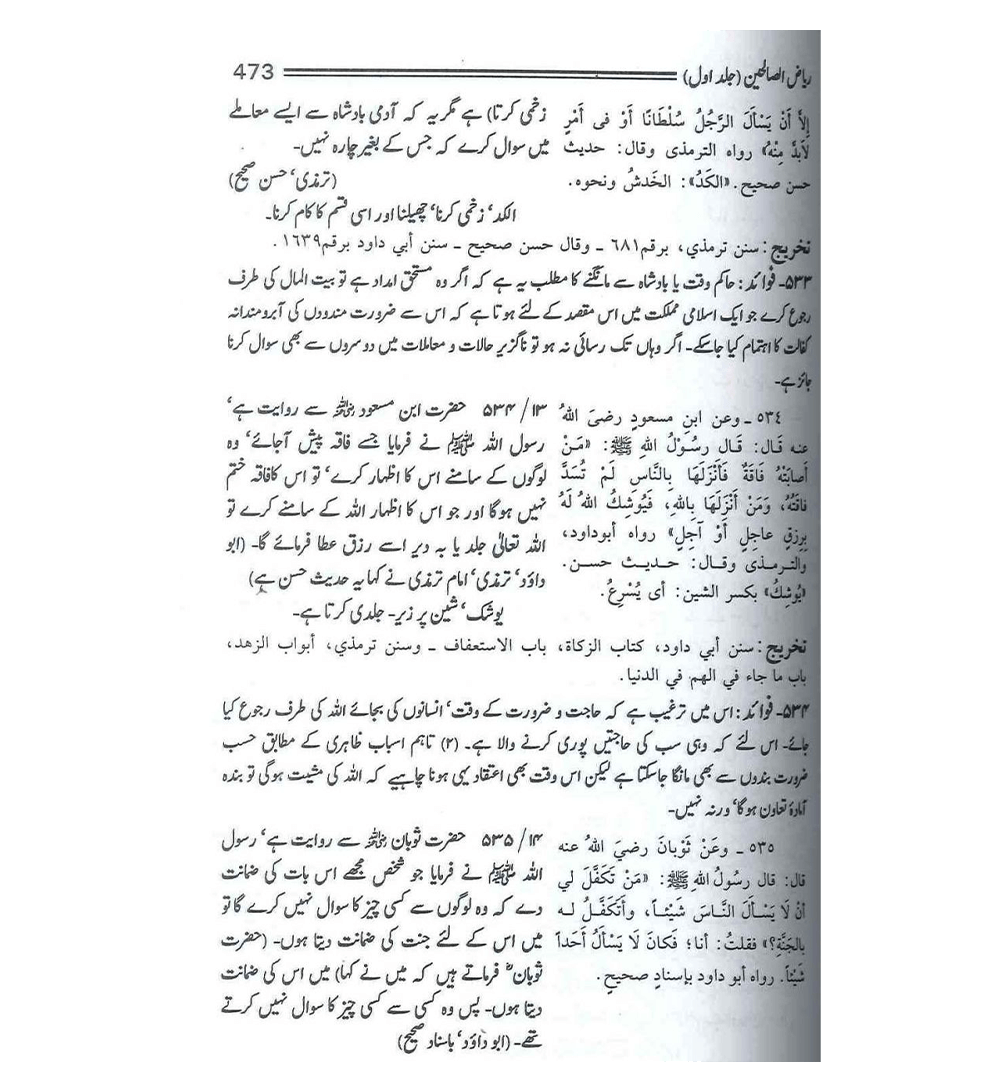 ریاض الصالحین (جلد اول) 473
إِلاَّ أَنْ يَسْأَلَ الرَّجُلُ سُلْطَانًا أَوْ فی أَمْرٍ
لَابدَّ مِنْهُ» رواه الترمذی وقال: حديث
حسن صحيح. «الكَدُ»: الخَدشُ ونحوه.
زخمی کرتا) ہے مگر یہ کہ آدمی بادشاہ سے ایسے معاملے
میں سوال کرے کہ جس کے بغیر چارہ نہیں۔
(ترمذی‘ حسن صحیح)
الکد‘ زخمی کرنا‘ چھیلنا اور اسی قسم کا کام کرنا۔
تخريج: سنن ترمذي، برقم٦٨١ ـ وقال حسن صحيح ـ سنن أبي داود برقم١٦٣٩.
۵۳۳- فوائد: حاکم وقت یا بادشاہ سے مانگنے کا مطلب یہ ہے کہ اگر وہ مستحق امداد ہے تو بیت المال کی طرف
رجوع کرے جو ایک اسلامی مملکت میں اس مقصد کے لئے ہوتا ہے کہ اس سے ضرورت مندوں کی آبرومندانہ
کفالت کا اہتمام کیا جاسکے۔ اگر وہاں تک رسائی نہ ہو تو ناگزیر حالات و معاملات میں دوسروں سے بھی سوال کرنا
جائز ہے۔
٥٣٤ ـ وعن ابنِ مسعودٍ رضیَ اللهُ
عنه قَالَ: قَال رسُوْلُ اللهِ ﷺ: «مَـنْ
أصابَتْهُ فَاقَةٌ فَأَنْزَلَهَا بِالنَّاسِ لَمْ تُسَدَّ
فاقَتُهُ، وَمَنْ أَنْزَلَهَا بِاللهِ، فَيُوشِكُ اللهُ لَهُ
بِرِزقٍ عاجِلٍ أَوْ آجِلٍ» رواه أبوداود،
والترمذی وقال: حديث حسن.
«يُوشِكُ» بكسر الشين: أی يُسْرِعُ.
۵۳۴/۱۳ حضرت ابن مسعود ؓ سے روایت ہے‘
رسول اللہ ﷺ نے فرمایا جسے فاقہ پیش آجائے‘ وہ
لوگوں کے سامنے اس کا اظہار کرے‘ تو اس کا فاقہ ختم
نہیں ہوگا اور جو اس کا اظہار اللہ کے سامنے کرے تو
اللہ تعالیٰ جلد یا بہ دیر اسے رزق عطا فرمائے گا۔ (ابو
داؤد‘ ترمذی‘ امام ترمذی نے کہا یہ حدیث حسن ہے)
یوشک‘ شین پر زیر۔ جلدی کرتا ہے۔
تخريج: سنن أبي داود، كتاب الزكاة، باب الاستعفاف ـ وسنن ترمذي، أبواب الزهد،
باب ما جاء في الهم في الدنيا.
۵۳۴- فوائد: اس میں ترغیب ہے کہ حاجت و ضرورت کے وقت‘ انسانوں کی بجائے اللہ کی طرف رجوع کیا
جائے۔ اس لئے کہ وہی سب کی حاجتیں پوری کرنے والا ہے۔ (۲) تاہم اسباب ظاہری کے مطابق حسب
ضرورت بندوں سے بھی مانگا جاسکتا ہے لیکن اس وقت بھی اعتقاد یہی ہونا چاہیے کہ اللہ کی مشیت ہوگی تو بندہ
آمادۂ تعاون ہوگا‘ ورنہ نہیں۔
٥٣٥ ـ وعَنْ ثَوْبانَ رضيَ اللهُ عنه
قال: قال رسُولُ اللهِ ﷺ: «مَنْ تَكَفَّلَ لي
أنْ لَا يَسْأَلَ النَّاسَ شَيْئاً، وأَتَكَفَّلُ لـه
بالجَنَّةِ؟» فقلتُ: أنا؛ فَكانَ لَا يَسْأَلُ أَحَداً
شَيْئاً. رواه أبو داود بإسنادٍ صحيحٍ.
۵۳۵/۱۴ حضرت ثوبان ؓ سے روایت ہے‘ رسول
اللہ ﷺ نے فرمایا جو شخص مجھے اس بات کی ضمانت
دے کہ وہ لوگوں سے کسی چیز کا سوال نہیں کرے گا تو
میں اس کے لئے جنت کی ضمانت دیتا ہوں۔ (حضرت
ثوبان ؓ فرماتے ہیں کہ میں نے کہا) میں اس کی ضمانت
دیتا ہوں۔ پس وہ کسی سے کسی چیز کا سوال نہیں کرتے
تھے۔ (ابو داؤد‘ باسناد صحیح)